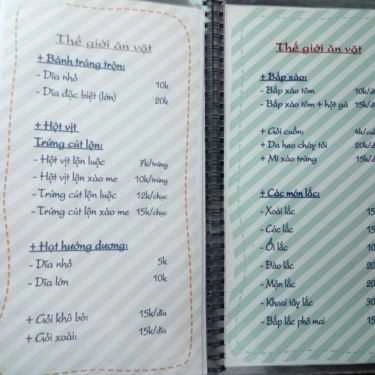 Thế giới ăn vặt
+ Bánh tráng trộn:
- Dĩa nhỏ 10k
- Dĩa đặc biệt (lớn) 20k
+ Hột vịt
Trứng cút lộn:
- Hột vịt lộn luộc 7k/trứng
- Hột vịt lộn xào me 10k/trứng
- Trứng cút lộn luộc 12k/chục
- Trứng cút lộn xào me 15k/chục
+ Hạt hướng dương:
- Dĩa nhỏ 5k
- Dĩa lớn 10k
+ Gỏi khô bò: 15k/dĩa
+ Gỏi xoài: 15k/dĩa
Thế giới ăn vặt
+ Bắp xào:
- Bắp xào tôm 10k/
- Bắp xào tôm + hột gà 15k/
+ Gỏi cuốn:
+ Da heo cháy tỏi 20k/
+ Mì xào trứng 15k/
+ Các món lắc:
- Xoài lắc
- Cóc lắc
- Ổi lắc
- Đào lắc
- Mận lắc
- Khoai tây lắc
- Bắp lắc phô mai